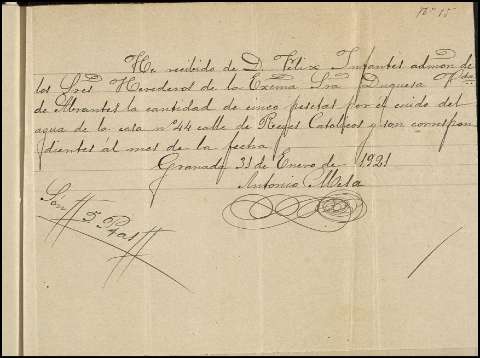 Nº 15
He recibido de D. Felix Infantes admon de
los Sres Herederos de la Excma Sra Duquesa Vda
de Abrantes la cantidad de cinco pesetas por el cuido del
agua de la casa nº 44 calle de Reyes Catolicos y son correspon
dientes al mes de la fecha
Granada 31 de Enero de 1921
Antonio Mesa
Son 5 Ptas